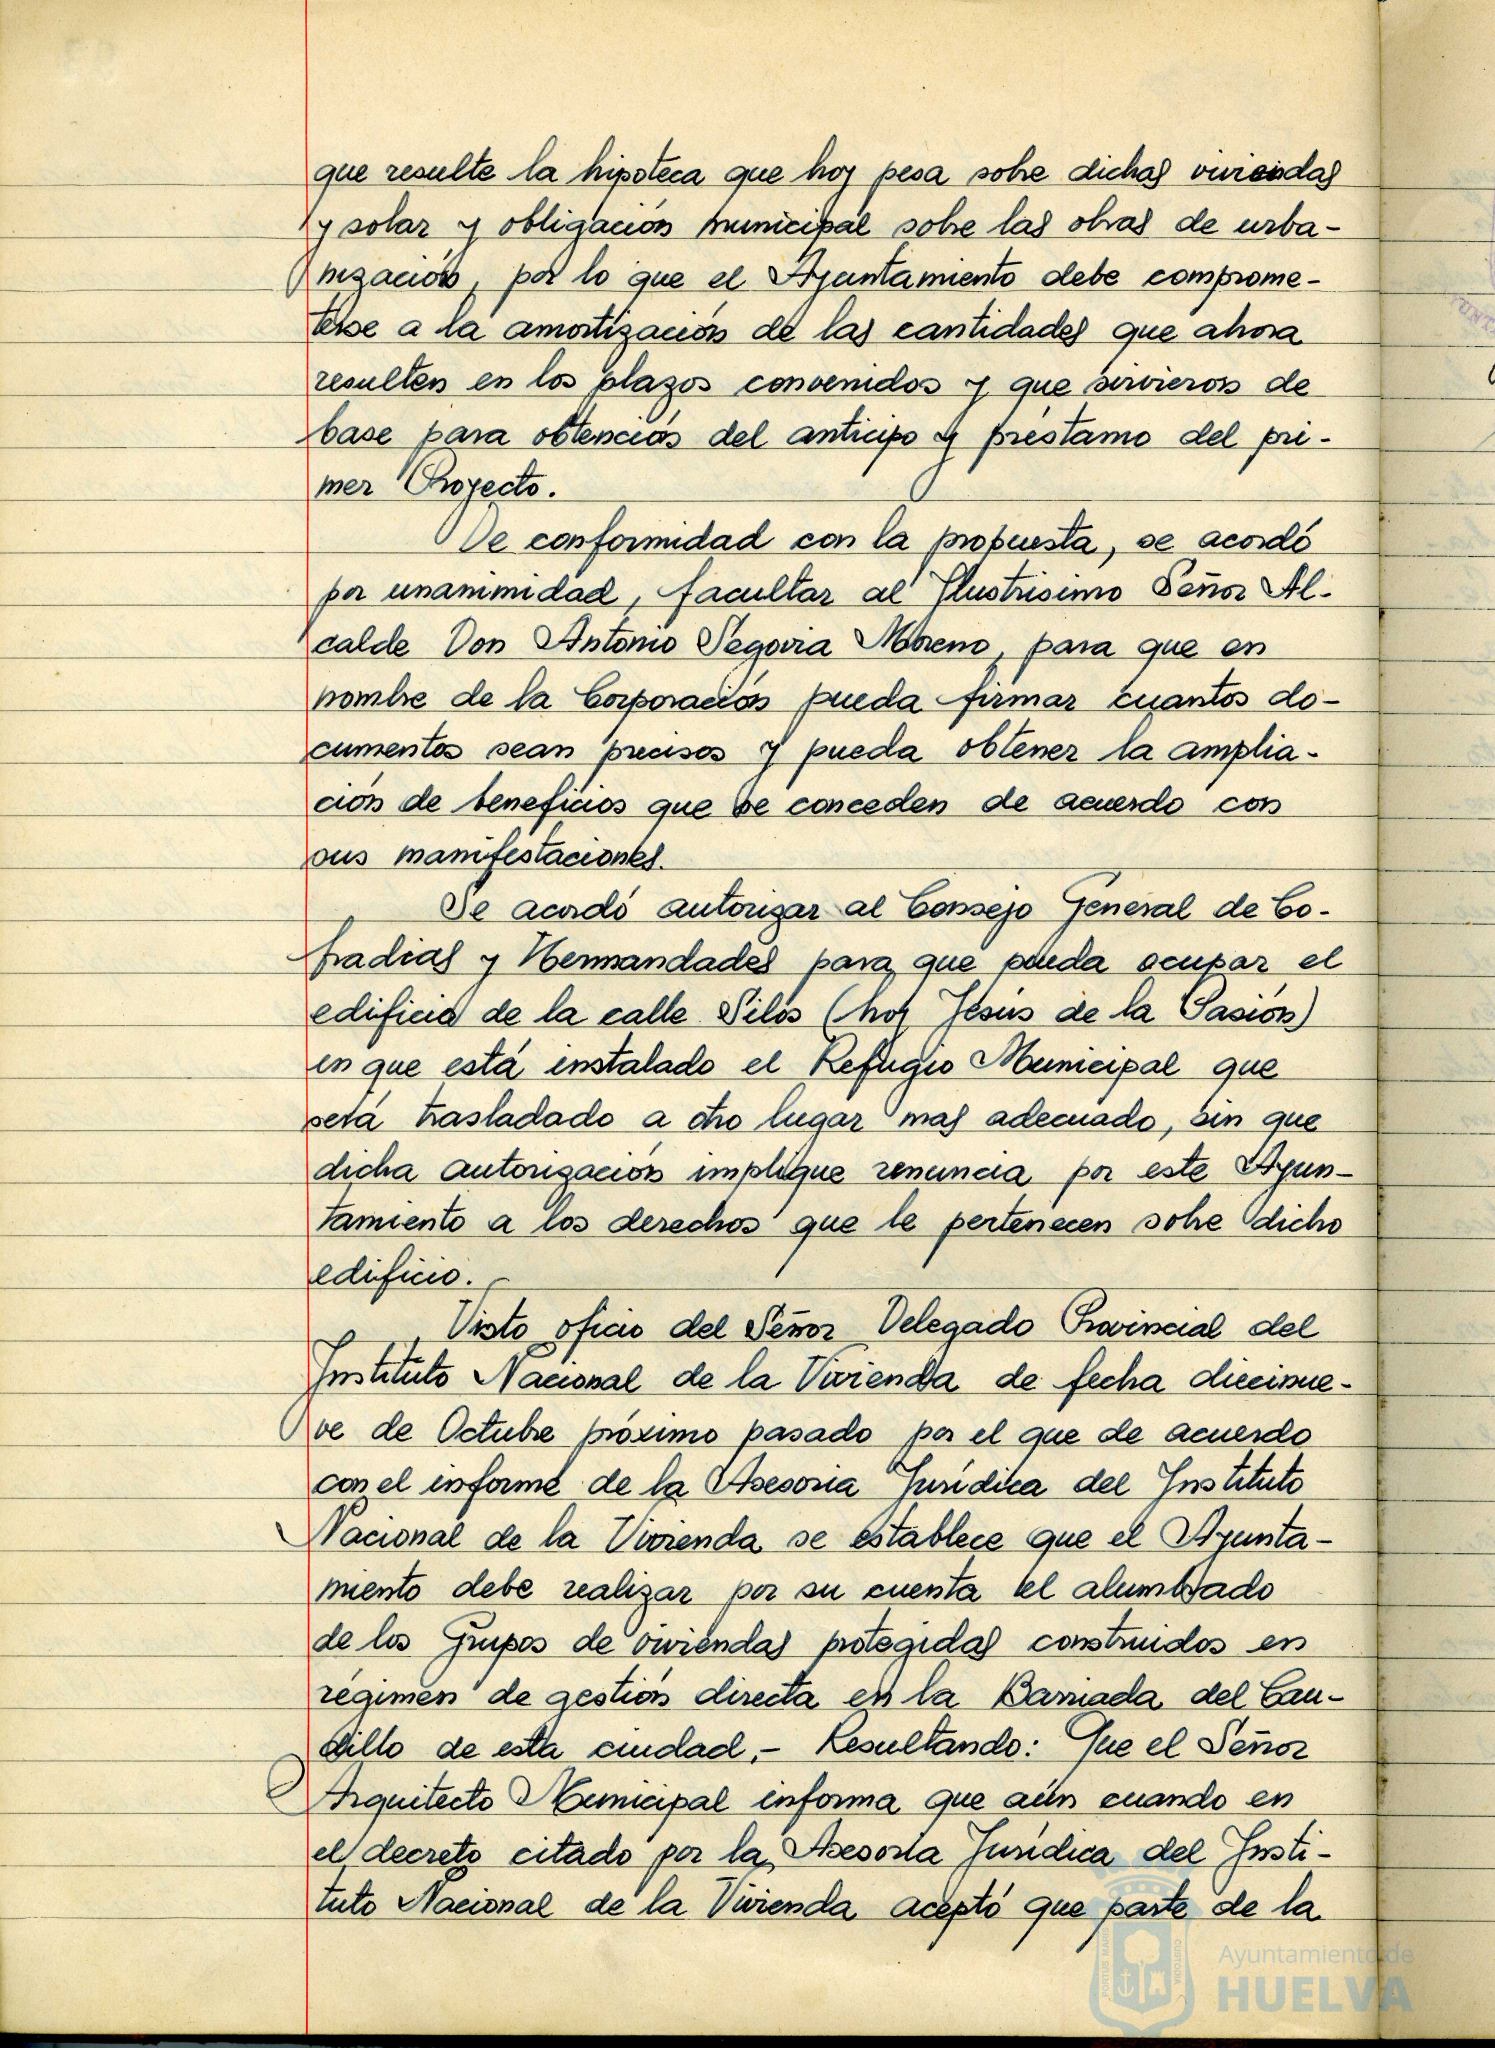 que resulte la hipoteca que hoy pesa sobre dichas viviendas
y solar y obligación municipal sobre las obras de urba-
nización, por lo que el Ayuntamiento debe comprome-
terse a la amortización de las cantidades que ahora
resulten en los plazos convenidos y que sirvieron de
base para obtención del anticipo y préstamo del pri-
mer Proyecto.
De conformidad con la propuesta, se acordó
por unanimidad, facultar al Ilustrisimo Señor Al-
calde Don Antonio Segovia Moreno, para que en
nombre de la Corporación pueda firmar cuantos do-
cumentos sean precisos y pueda obtener la amplia-
ción de beneficios que se conceden de acuerdo con
sus manifestaciones.
Se acordó autorizar al Consejo General de Co-
fradias y Hermandades para que pueda ocupar el
edificio de la calle Silos (hoy Jesús de la Pasión)
en que está instalado el Refugio Municipal que
será trasladado a otro lugar mas adecuado, sin que
dicha autorización implique renuncia por este Ayun-
tamiento a los derechos que le pertenecen sobre dicho
edificio.
Visto oficio del Señor Delegado Provincial del
Instituto Nacional de la Vivienda de fecha diecinue-
ve de Octubre próximo pasado por el que de acuerdo
con el informe de la Asesoria Jurídica del Instituto
Nacional de la Vivienda se establece que el Ayunta-
miento debe realizar por su cuenta el alumbrado
de los Grupos de viviendas protegidas construidos en
régimen de gestión directa en la Barriada del Cau-
dillo de esta ciudad.- Resultando: Que el Señor
Arquitecto Municipal informa que aún cuando en
el decreto citado por la Asesoría Jurídica del Insti-
tuto Nacional de la Vivienda aceptó que parte de la
Ayuntamiento de
HUELVA